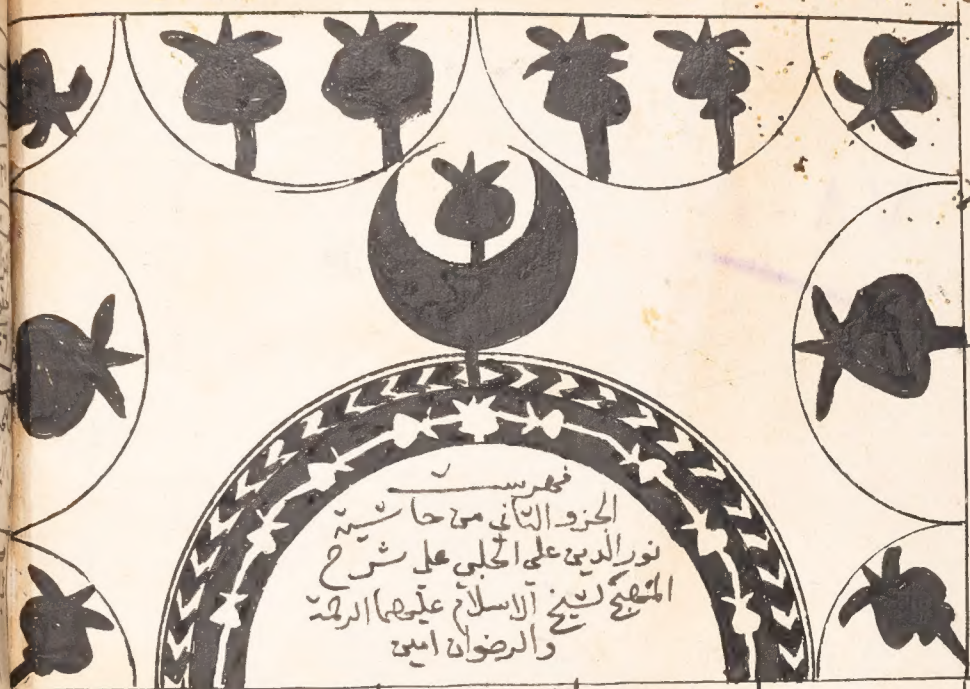 فهرست
الجزو الثاني من حاشية
نور الدين علي الحلبي على شرح
المنهج لشيخ الاسلام عليهما الرحمة
والرضوان امين